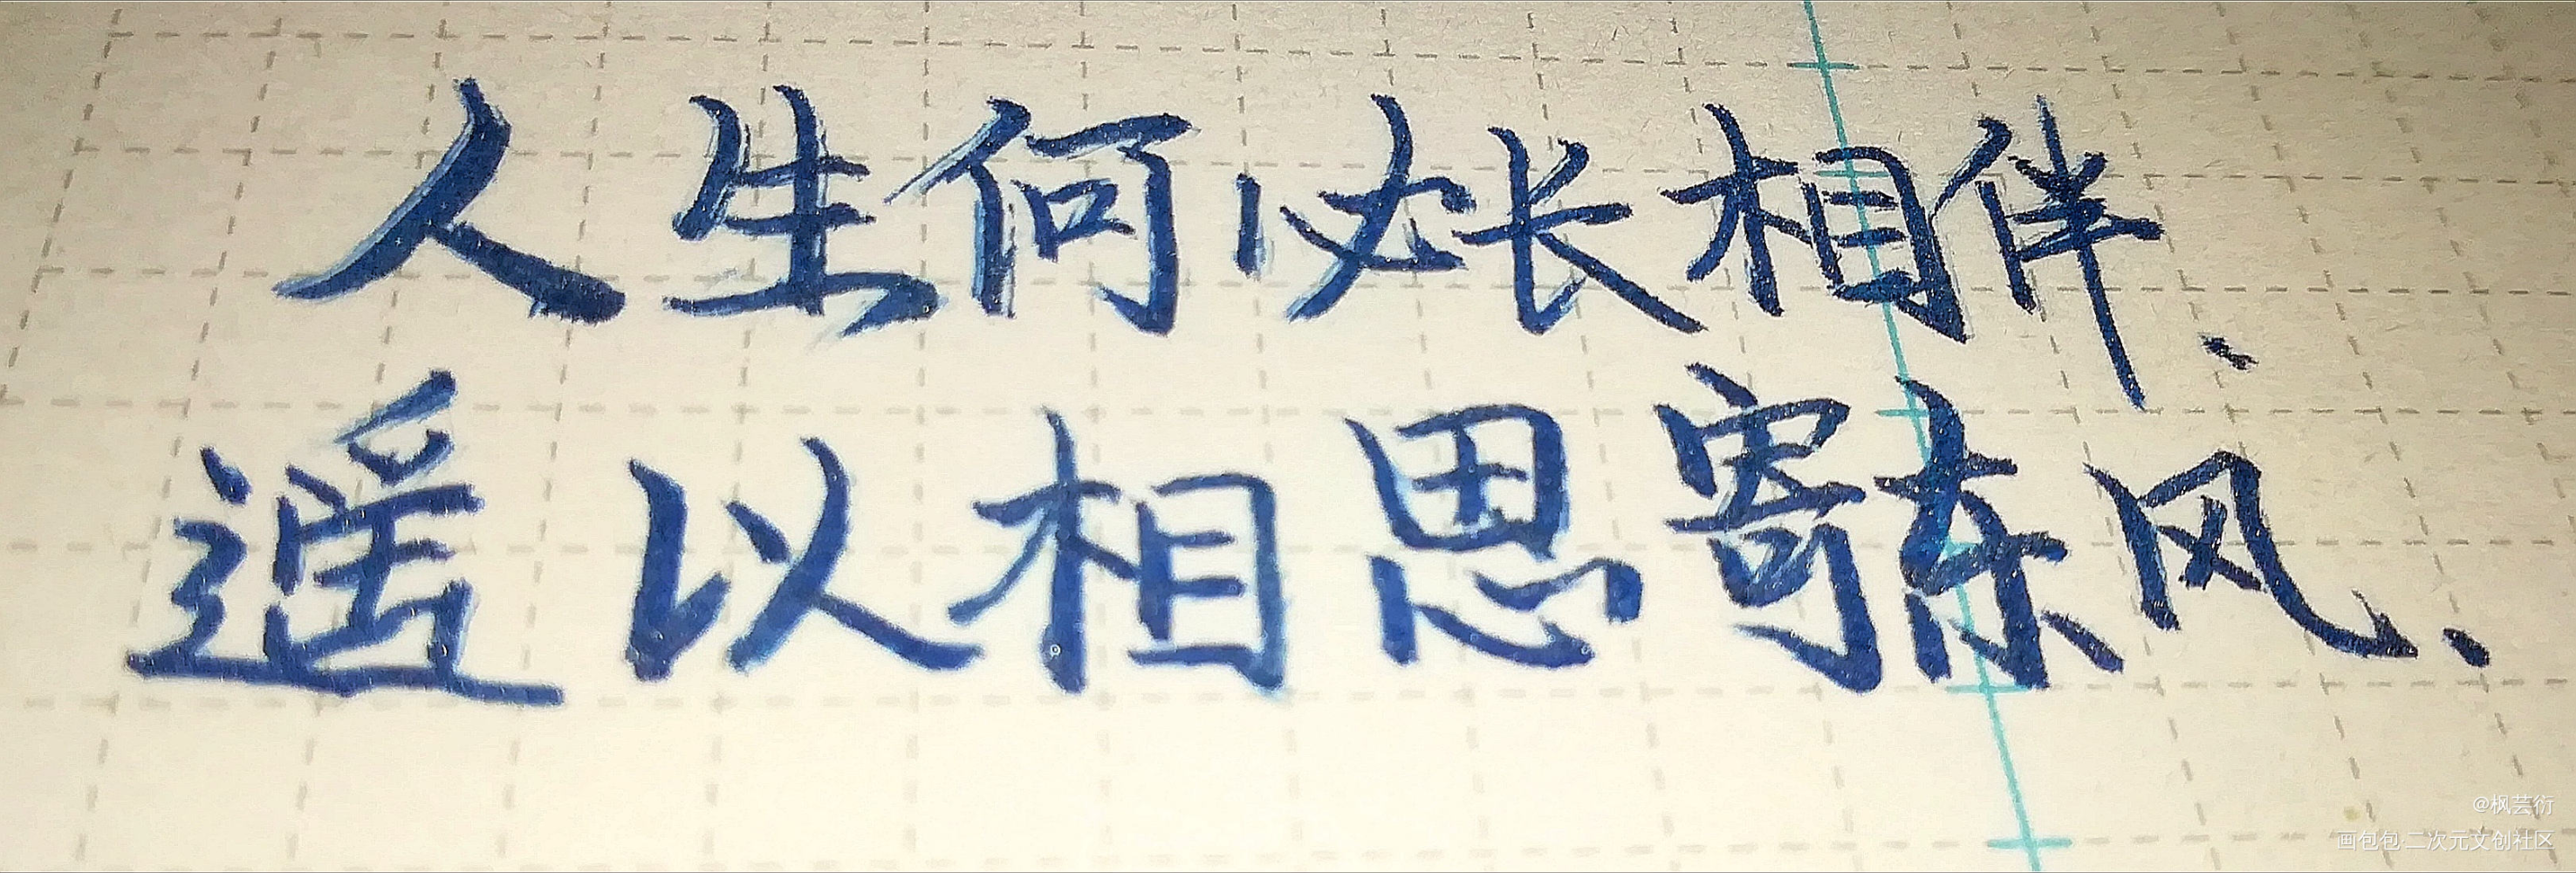 人生何必长相伴、
遥以相思寄东风、
@枫芸衍
画包包·二次元文创社区